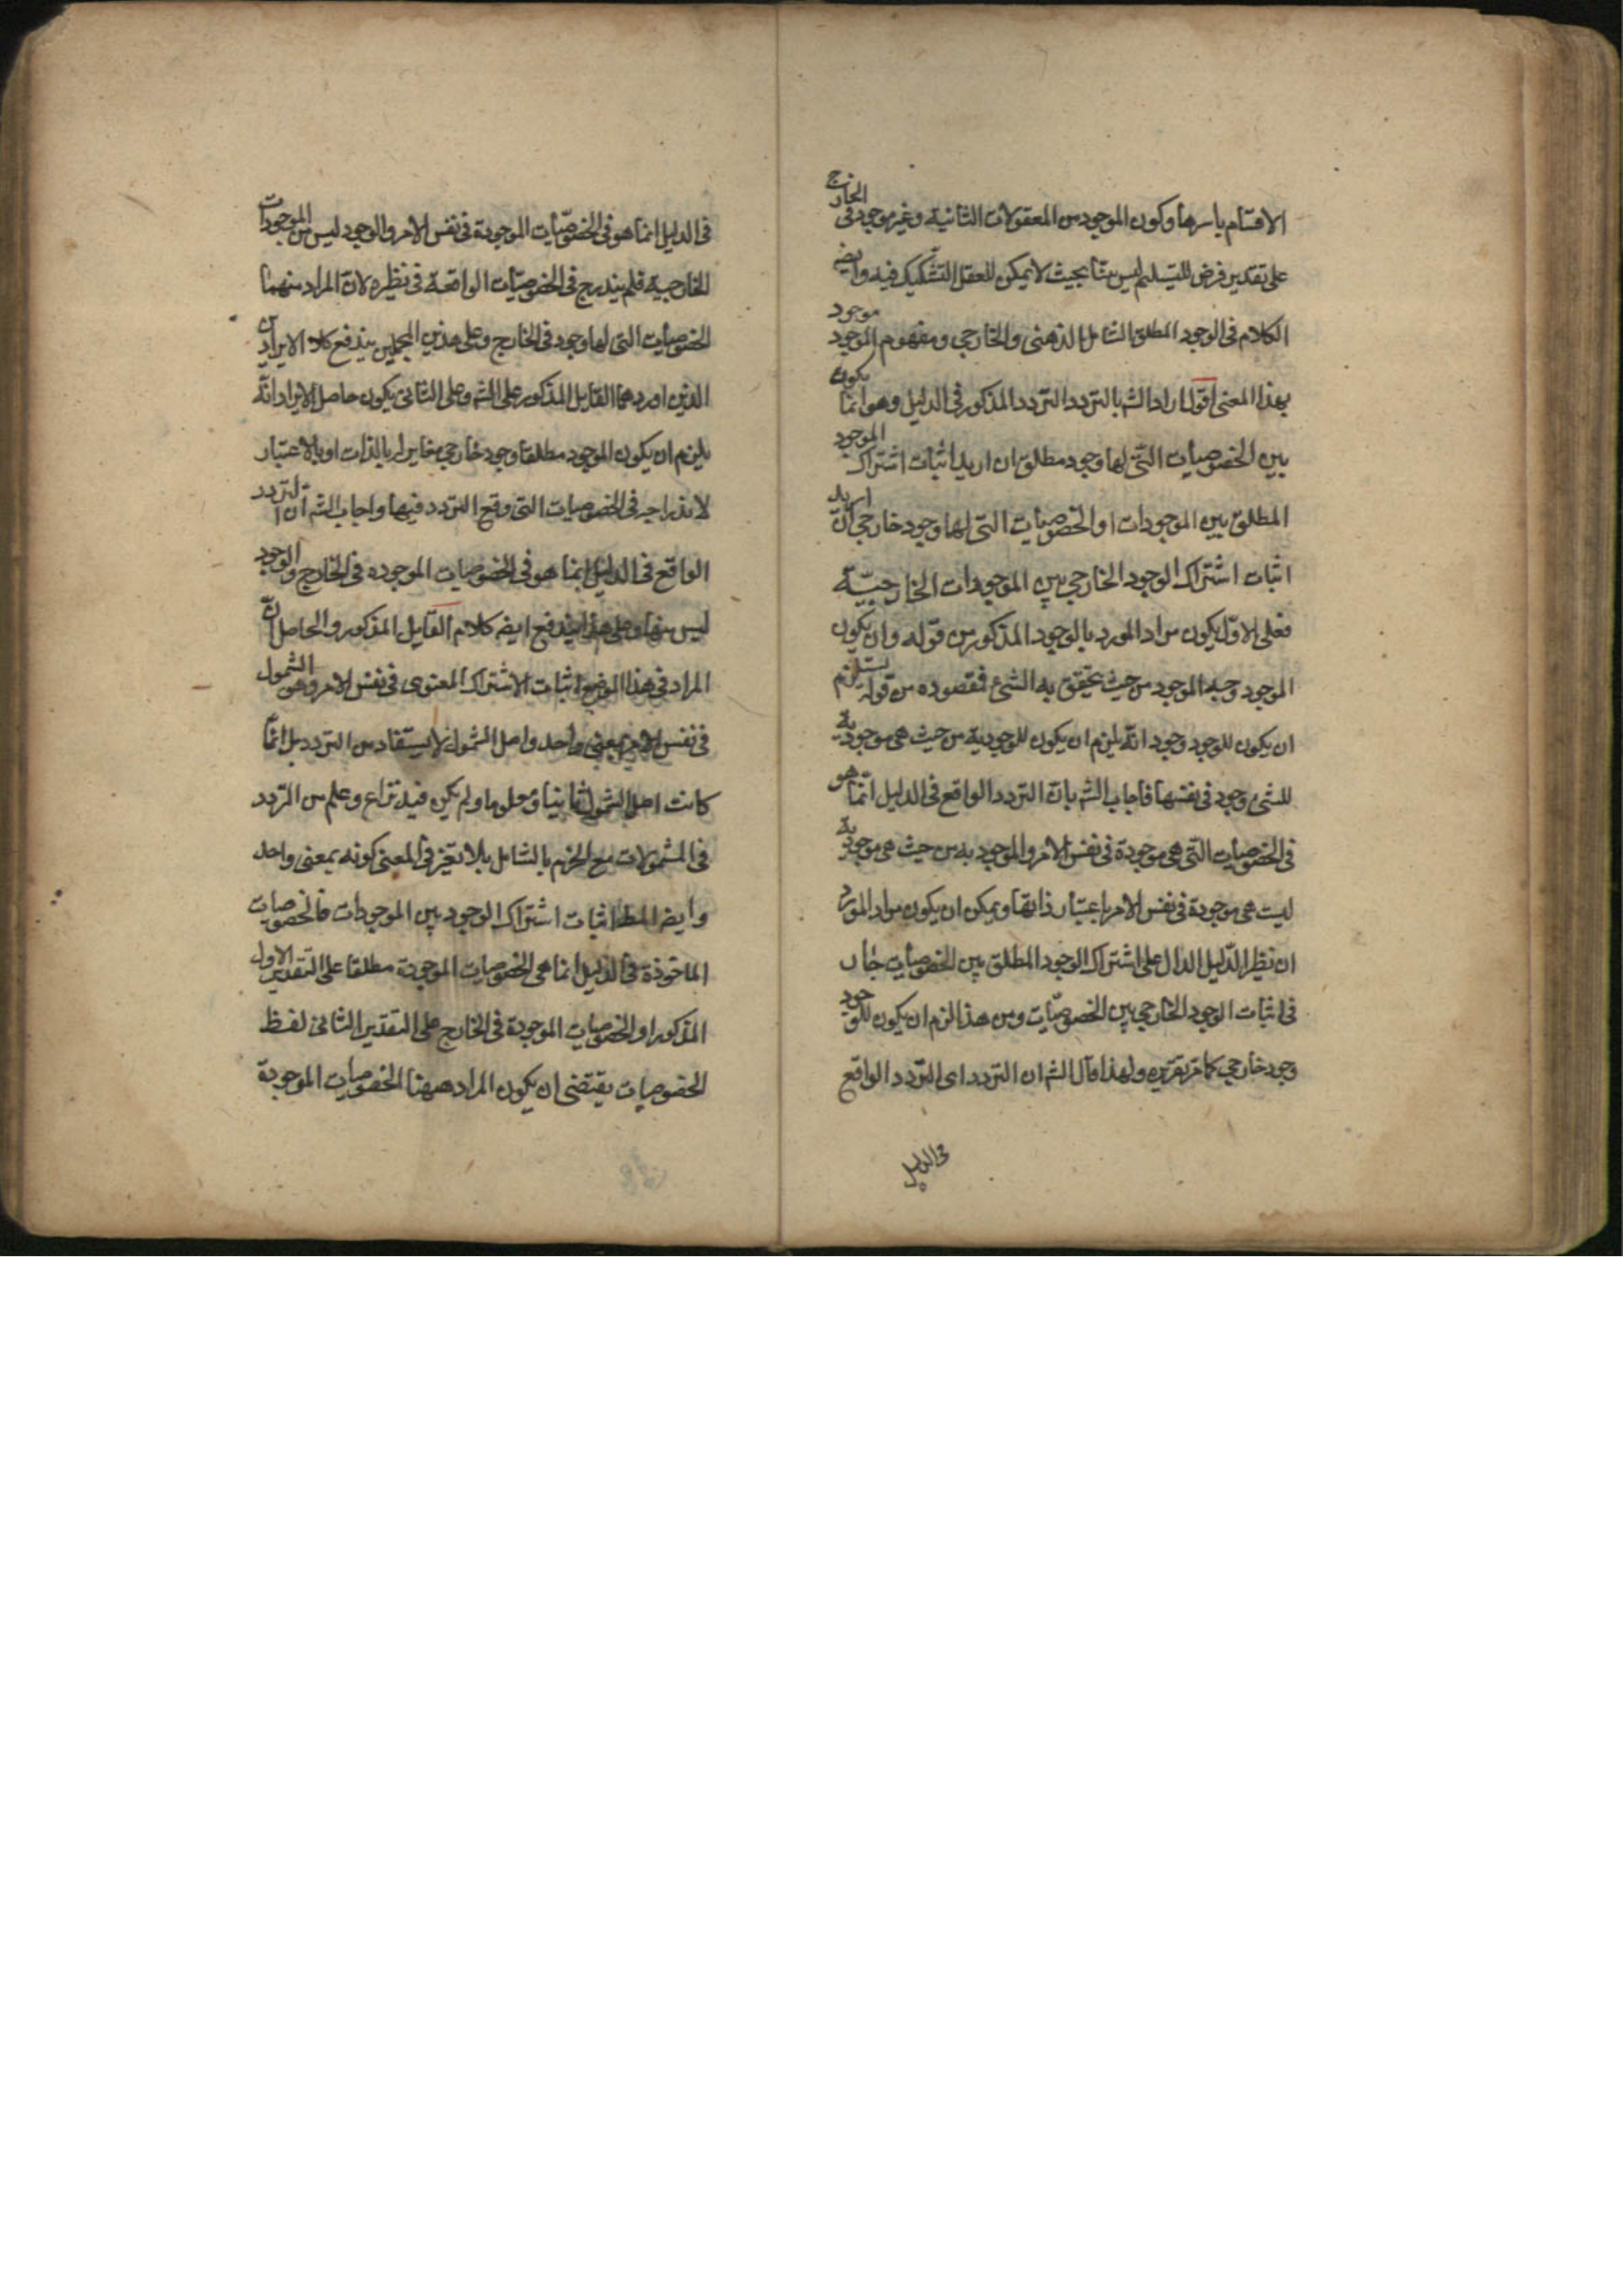 الاقسام باسرها وكون الموجود من المعقولات الثانية وغير موجود فى الخارج
على تقدير فرض التسليم ليس بينا بحيث لا يمكن للعقل التشكيك فيه وايضا
الكلام فى الوجود المطلق الشامل الذهنى والخارجى ومفهوم الموجود موجود
بهذا المعنى اقول اراد الشه بالتردد التردد المذكور فى الدليل وهو انما يكون
بين الخصوصيات التى لها وجود مطلق ان اريد اثبات اشتراك الموجود
المطلق بين الموجودات او الخصوصيات التى لها وجود خارجى ان اريد
اثبات اشتراك الوجود الخارجى بين الموجودات الخارجيّة
فعلى الاول يكون مراد المورد بالوجود المذكور من قوله وان يكون
الموجود وجه الموجود من حيث يتحقق به الشئ فمقصوده من قوله يستلزم
ان يكون للوجود وجود انه يلزم ان يكون للوجودية من حيث هى موجودية
للشئ وجود فى نفسها فاجاب الشه بان التردد الواقع فى الدليل انما هو
فى الخصوصيات التى هى موجودة فى نفس الامر والموجودية من حيث هى موجودية
ليست هى موجودة فى نفس الامر باعتبار ذاتها ويمكن ان يكون مراد المورد
ان نظير الدليل الدال على اشتراك الوجود المطلق بين الخصوصيات جار
فى اثبات الوجود الخارجى بين الخصوصيات ومن هذا لزم ان يكون للوجود
وجود خارجى كما مر تقريره ولهذا قال الشه ان التردد اى التردد الواقع
فى الدليل
فى الدليل انما هو فى الخصوصيات الموجودة فى نفس الامر والوجود ليس من الموجودات
الخارجية فلم يندرج فى الخصوصيات الواقعة فى نظيره لان المراد منهما
الخصوصيات التى لها وجود فى الخارج وعلى هذين المحملين يندفع كلا الايرادين
الذين اوردهما القايل المذكور على الشه وعلى الثانى يكون حاصل الايراد انه
يلزم ان يكون الموجود مطلقا وجود خارجى مغاير بالذات او بالاعتبار
لاندراجه فى الخصوصيات التى وقع التردد فيها واجاب الشه ان التردد
الواقع فى الدليل انما هو فى الخصوصيات الموجوده فى الخارج والوجود
ليس منها وعلى هذا يندفع ايضه كلام القايل المذكور والحاصل ان
المراد فى هذا الموضع اثبات الاشتراك المعنوى فى نفس الامر وهو الشمول
فى نفس الامر بمعنى واحد واصل الشمول لا يستفاد من التردد بل انما
كانت اصل الشمول ثابتا ومعلوما ولم يكن فيه نزاع وعلم من التردد
فى المشمولات مع الجزم بالشامل بلا تغير فى المعنى كونه بمعنى واحد
وايضه المط اثبات اشتراك الوجود بين الموجودات فالخصوصيات
الماخوذة فى الدليل انما هى الخصوصيات الموجودة مطلقا على التقدير الاول
المذكور او الخصوصيات الموجودة فى الخارج على التقدير الثانى لفظ
الخصوصيات يقتضى ان يكون المراد ههنا الخصوصيات الموجودة